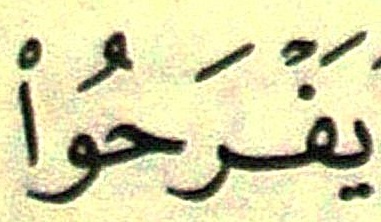 يَفْرَحُواْ